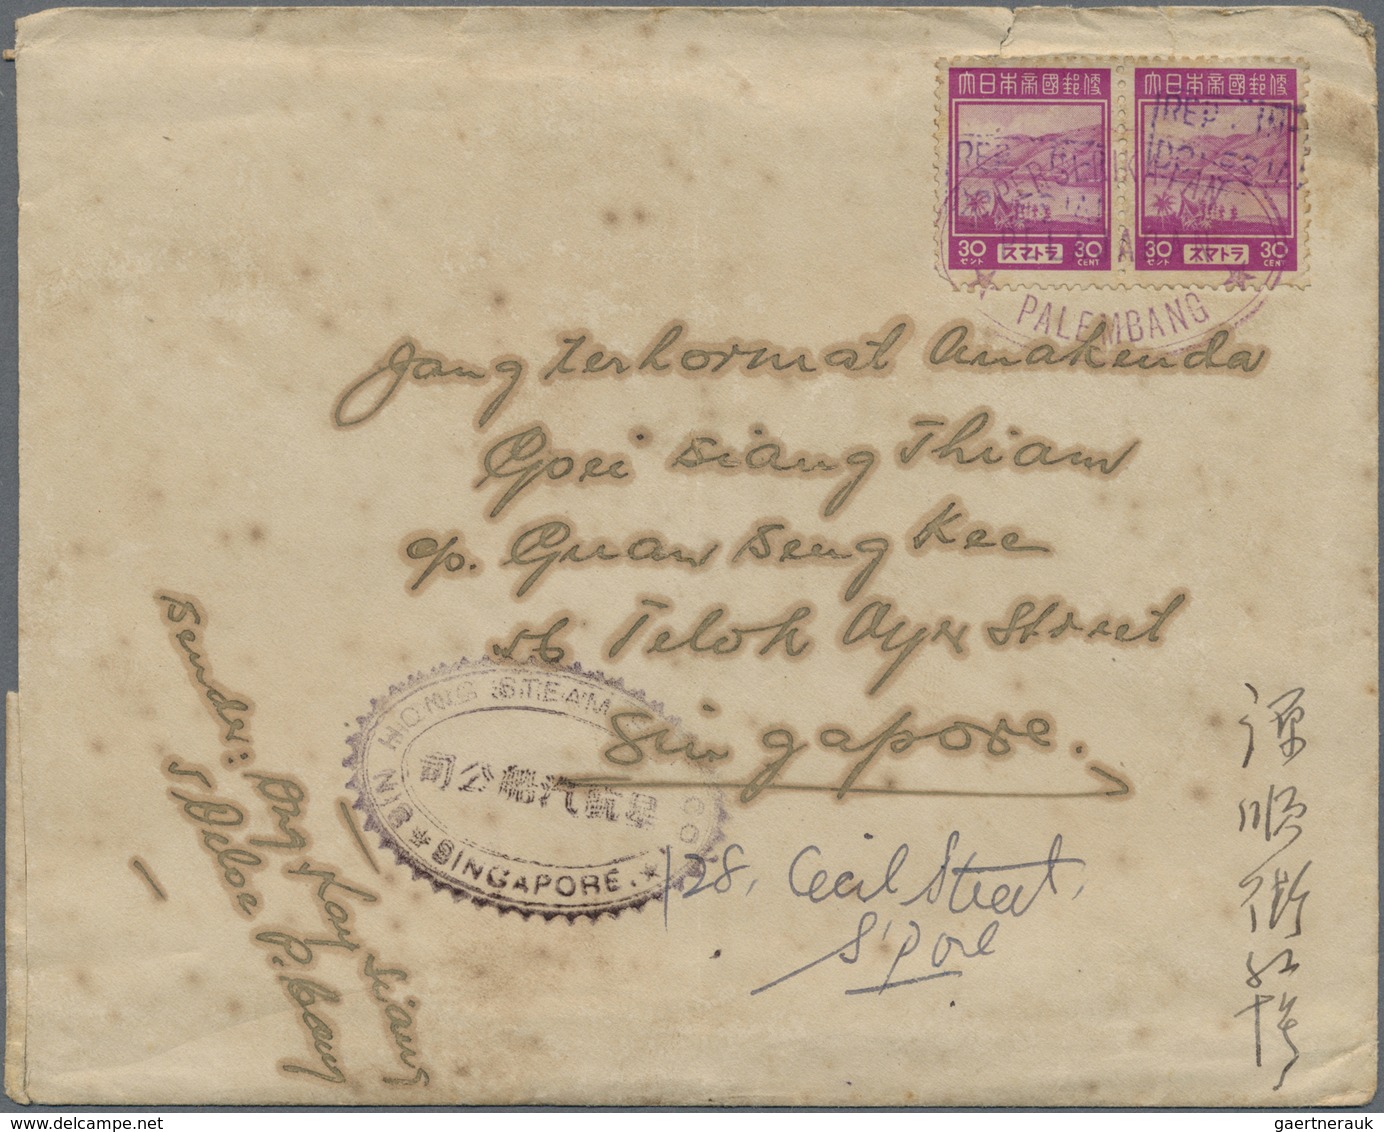 大日本帝國郵便 大日本帝國郵便
REP.
REP.
30 セント スマトラ 30 CENT 30 セント スマトラ 30 CENT
PALEMBANG
Jang terhormat Anakenda
Goei Siang Thiam
c/o. Guan Seng Kee
56 Teloh Ayer Street
Singapore.
SIN HONG STEAM CO
司公船汽航星
SINGAPORE.
128, Cecil Street,
S'pore
Sender: Ong Kay Siang
5 Ocloe P.bang
順街
gaertnerauk